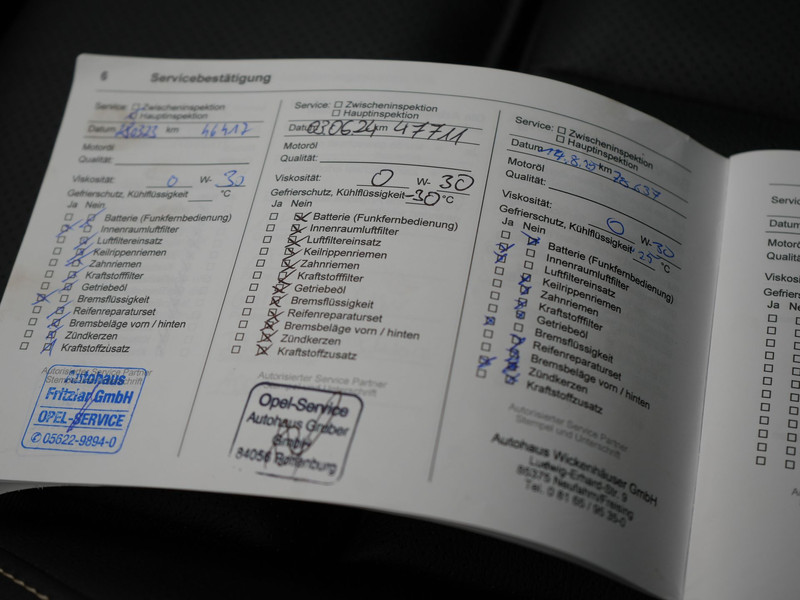 6 Servicebestätigung
Service: Zwischeninspektion
Hauptinspektion
Datum km 46417
Motoröl
Qualität:
Viskosität: 0 W- 30
Gefrierschutz, Kühlflüssigkeit °C
Ja Nein
Batterie (Funkfernbedienung)
Innenraumluftfilter
Luftfiltereinsatz
Keilrippenriemen
Zahnriemen
Kraftstofffilter
Getriebeöl
Bremsflüssigkeit
Reifenreparaturset
Bremsbeläge vorn / hinten
Zündkerzen
Kraftstoffzusatz
Autorisierter Service Partner
Autohaus
Fritzlar GmbH
OPEL-SERVICE
05622-9894-0
Service: Zwischeninspektion
Hauptinspektion
Datum 03.06.24 km 47711
Motoröl
Qualität:
Viskosität: 0 W- 30
Gefrierschutz, Kühlflüssigkeit -30 °C
Ja Nein
Batterie (Funkfernbedienung)
Innenraumluftfilter
Luftfiltereinsatz
Keilrippenriemen
Zahnriemen
Kraftstofffilter
Getriebeöl
Bremsflüssigkeit
Reifenreparaturset
Bremsbeläge vorn / hinten
Zündkerzen
Kraftstoffzusatz
Autorisierter Service Partner
Opel-Service
Autohaus Graber
GmbH
84056 Rottenburg
Service: Zwischeninspektion
Hauptinspektion
Datum km
Motoröl
Qualität:
Viskosität: 0 W- 30
Gefrierschutz, Kühlflüssigkeit -25 °C
Ja Nein
Batterie (Funkfernbedienung)
Innenraumluftfilter
Luftfiltereinsatz
Keilrippenriemen
Zahnriemen
Kraftstofffilter
Getriebeöl
Bremsflüssigkeit
Reifenreparaturset
Bremsbeläge vorn / hinten
Zündkerzen
Kraftstoffzusatz
Autorisierter Service Partner
Stempel und Unterschrift
Autohaus Wickenhäuser GmbH
Ludwig-Erhard-Str. 9
85375 Neufahrn/Freising
Tel. 0 81 65 / 95 35-0
Ja Nein